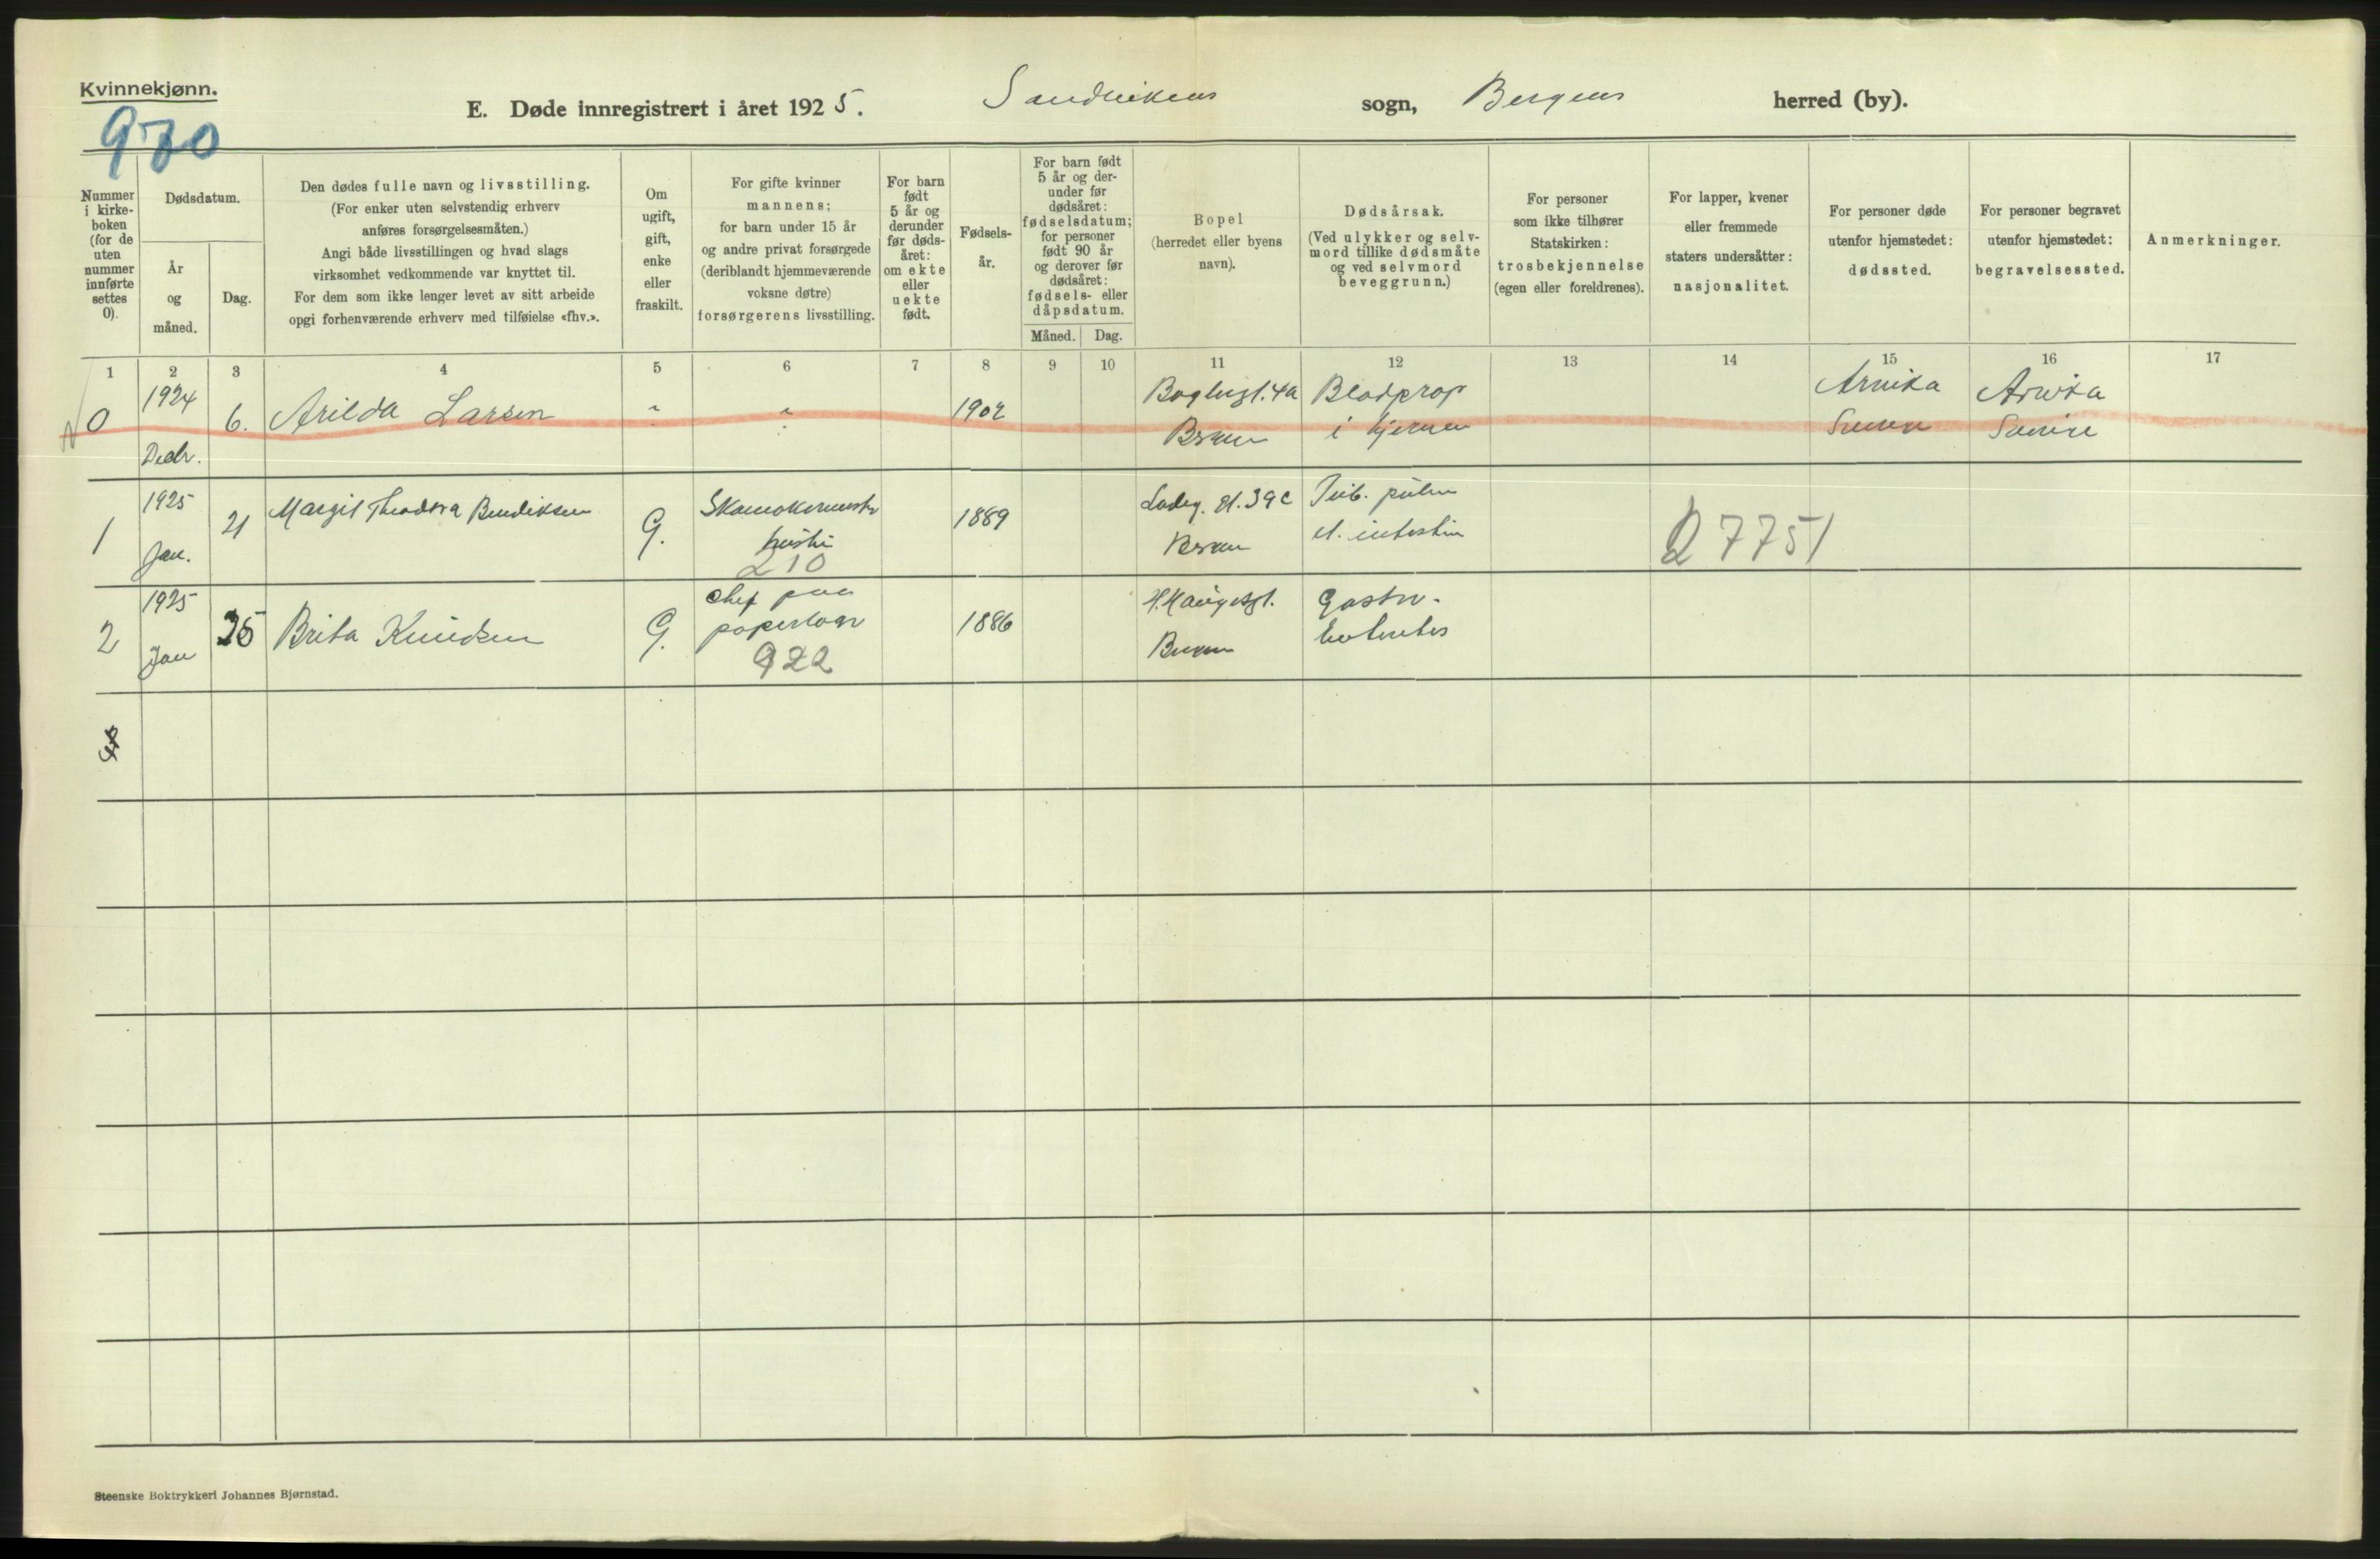 Kvinnekjønn.
970
E. Døde innregistrert i året 1925. Sandvikens sogn, Bergens herred (by).
Nummer i kirke-boken (for de uten nummer innførte settes 0).
Dødsdatum.
År og måned.
Dag.
Den dødes fulle navn og livsstilling.
(For enker uten selvstendig erhverv
anføres forsørgelsesmåten.)
Angi både livsstillingen og hvad slags
virksomhet vedkommende var knyttet til.
For dem som ikke lenger levet av sitt arbeide
opgi forhenværende erhverv med tilføielse «fhv.».
Om
ugift,
gift,
enke
eller
fraskilt.
For gifte kvinner
mannens;
for barn under 15 år
og andre privat forsørgede
(deriblandt hjemmeværende
voksne døtre)
forsørgerens livsstilling.
For barn
født
5 år og
derunder
før døds-
året:
om ekte
eller
uekte
født.
Fødsels-
år.
For barn født
5 år og der-
under før
dødsåret:
fødselsdatum;
for personer
født 90 år
og derover før
dødsåret:
fødsels- eller
dåpsdatum.
Måned. Dag.
Bopel
(herredet eller byens
navn).
Dødsårsak.
(Ved ulykker og selv-
mord tillike dødsmåte
og ved selvmord
beveggrunn.)
For personer
som ikke tilhører
Statskirken:
trosbekjennelse
(egen eller foreldrenes).
For lapper, kvener
eller fremmede
staters undersåtter:
nasjonalitet.
For personer døde
utenfor hjemstedet:
dødssted.
For personer begravet
utenfor hjemstedet:
begravelsessted.
Anmerkninger.
1 2 3 4 5 6 7 8 9 10 11 12 13 14 15 16 17
0 1924 Decbr. 6. Arilda Larsen 1902 4a Blodprop i hjernen Arvika Arvika
1 1925 Jan. 21 Margit Theodora Bendiksen G. 210 1889 Ladeg. gt. 39c Bergen Tub. pulm et. intestin 27751
2 1925 Jan 26 Brita Knudsen G. chef paa 922 1886 H. Haugesgt. Bergen Gastro-
Steenske Boktrykkeri Johannes Bjørnstad.